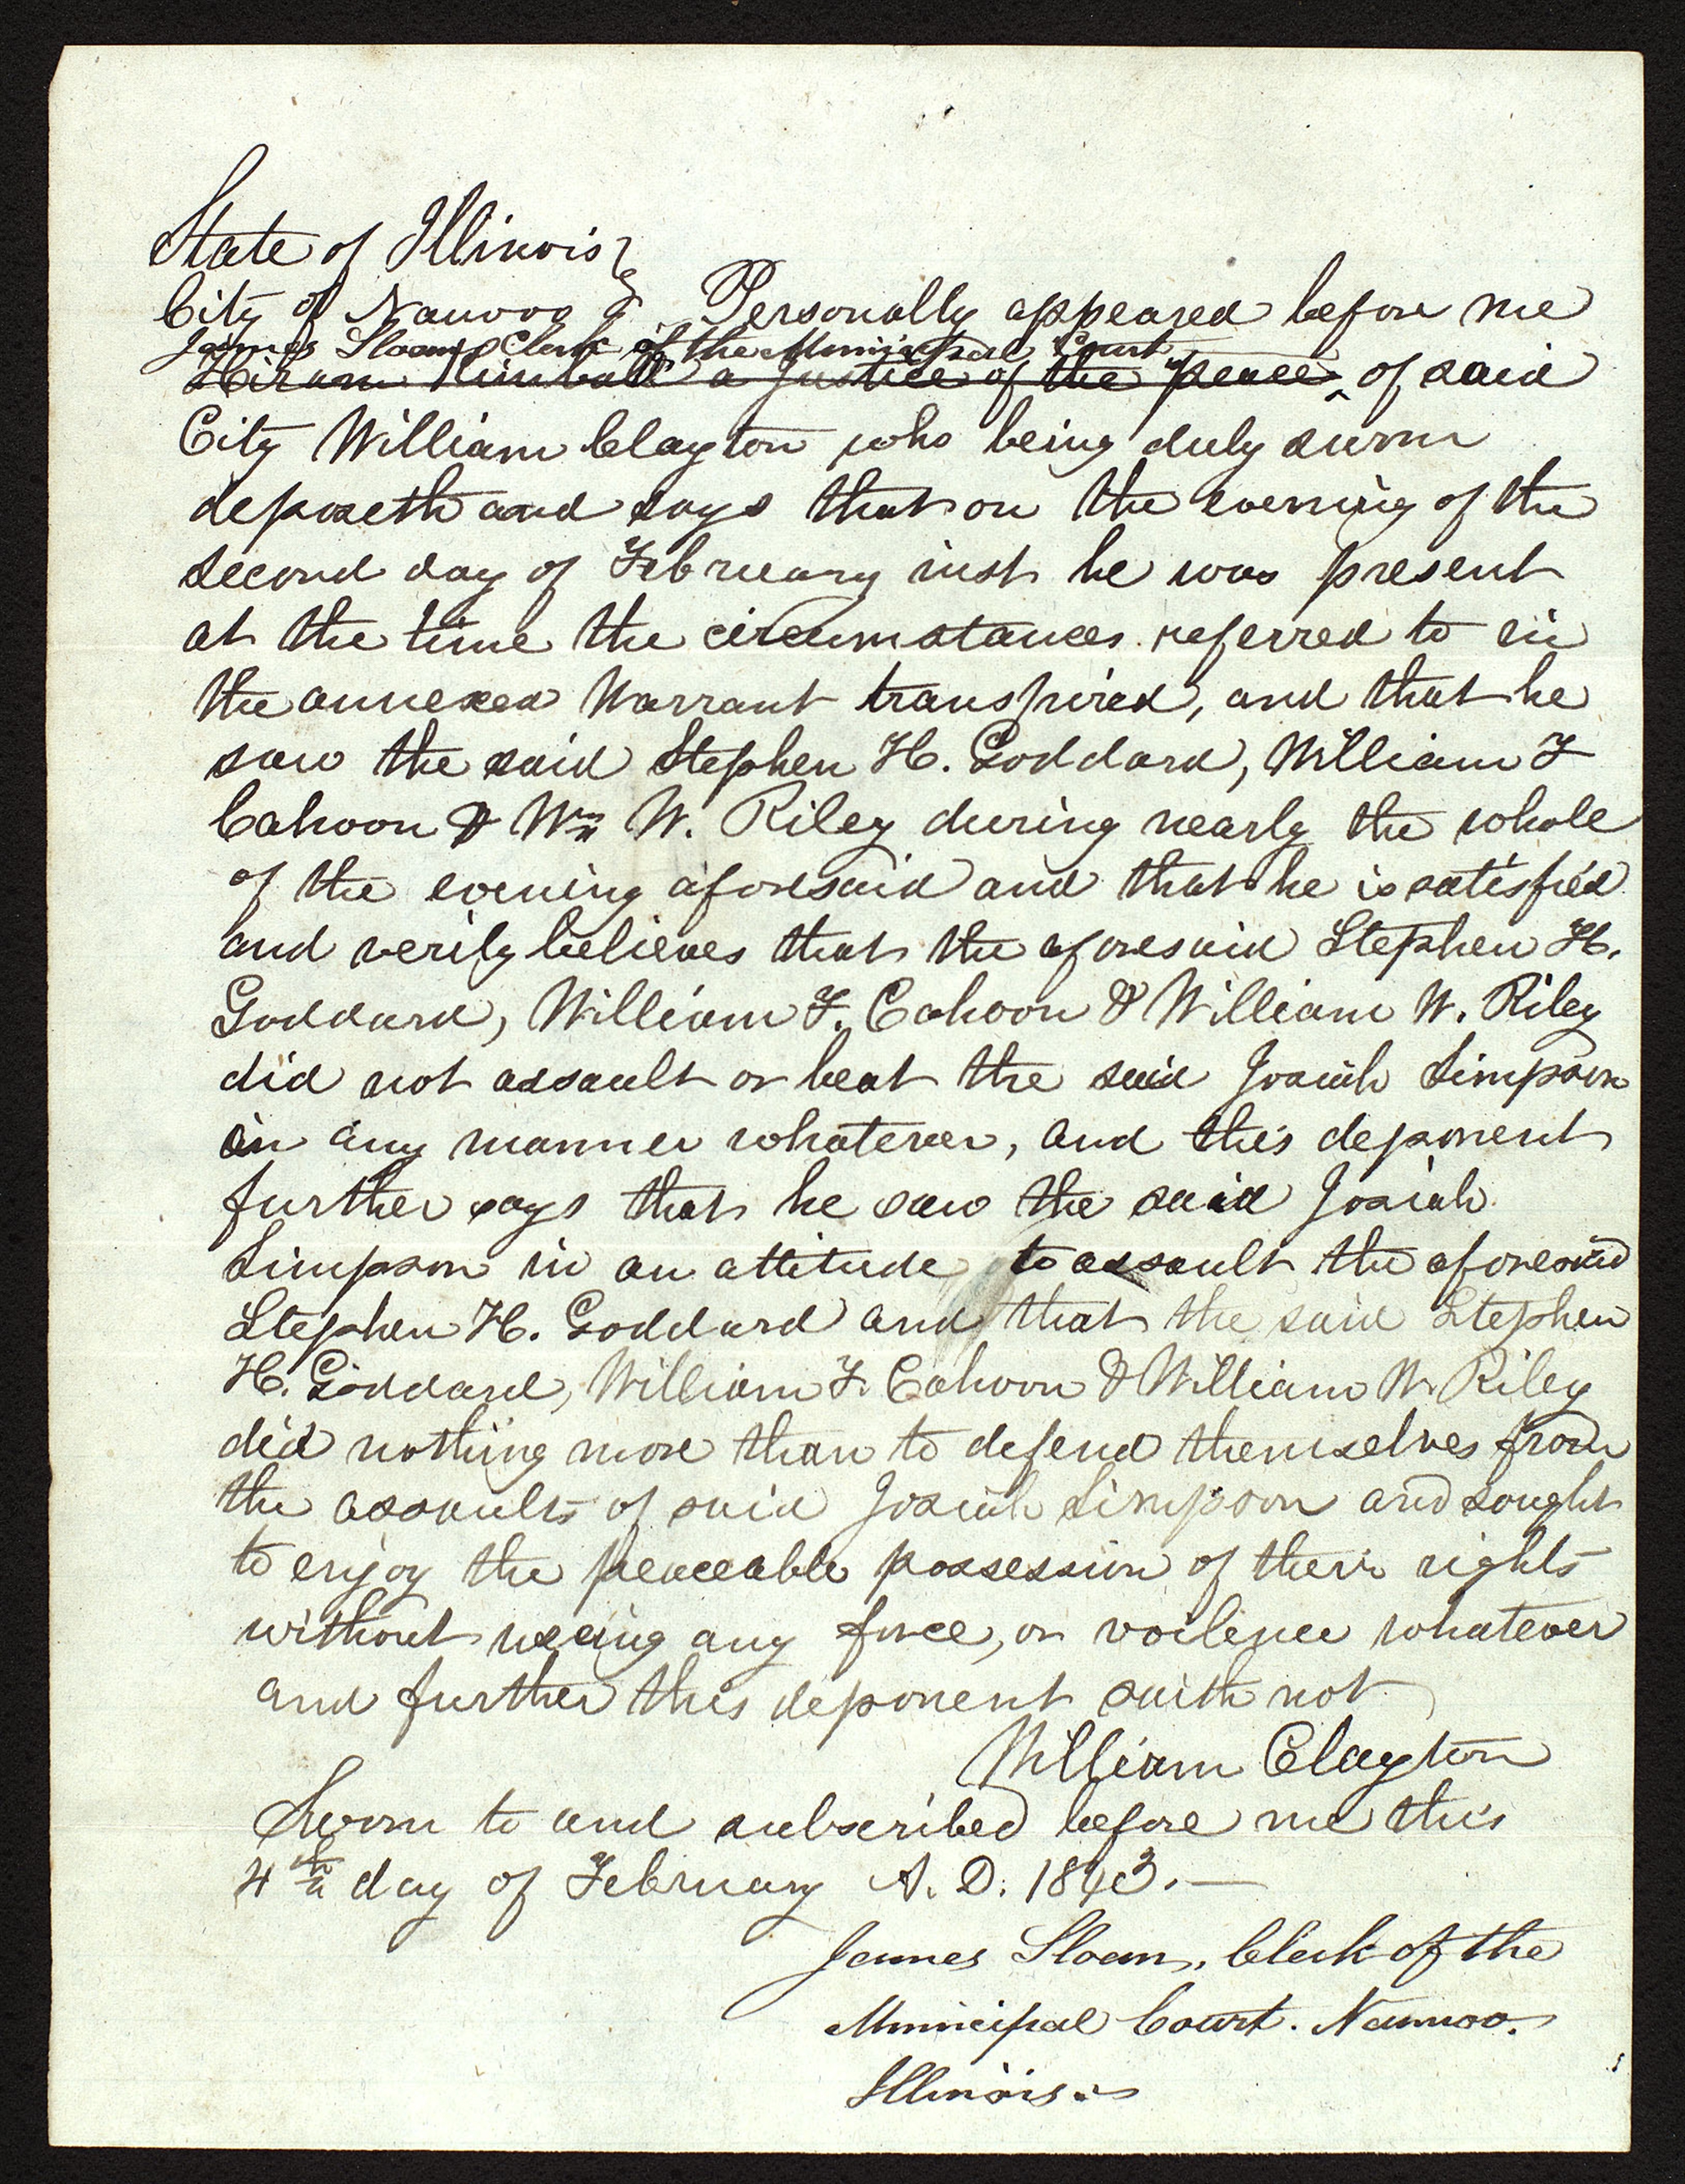 State of Illinois }
City of Nauvoo } Personally appeared before me
James Sloan, Clerk of the Municipal Court
Hiram Kimball a Justice of the peace of said
City William Clayton who being duly sworn
deposeth and says that on the evening of the
second day of February inst he was present
at the time the circumstances referred to in
the annexed Warrant transpired, and that he
saw the said Stephen H. Goddard, William F
Cahoon & Wm W. Riley during nearly the whole
of the evening aforesaid and that he is satisfied
and verily believes that the aforesaid Stephen H.
Goddard, William F. Cahoon & William W. Riley
did not assault or beat the said Josiah Simpson
in any manner whatever, and this deponent
further says that he saw the said Josiah
Simpson in an attitude to assault the aforesaid
Stephen H. Goddard and that the said Stephen
H. Goddard, William F. Cahoon & William W. Riley
did nothing more than to defend themselves from
the assaults of said Josiah Simpson and sought
to enjoy the peaceable possession of their rights
without useing any force, or voilence whatever
and further this deponent saith not
William Clayton
Sworn to and subscribed before me this
4th day of February A. D. 1843.—
James Sloan, Clerk of the
Municipal Court. Nauvoo.
Illinois.